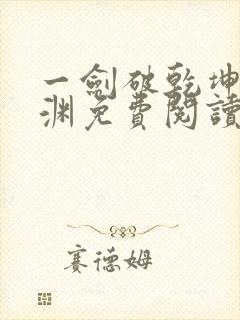 一劍破乾坤
淵免費閱讀
賽德姆